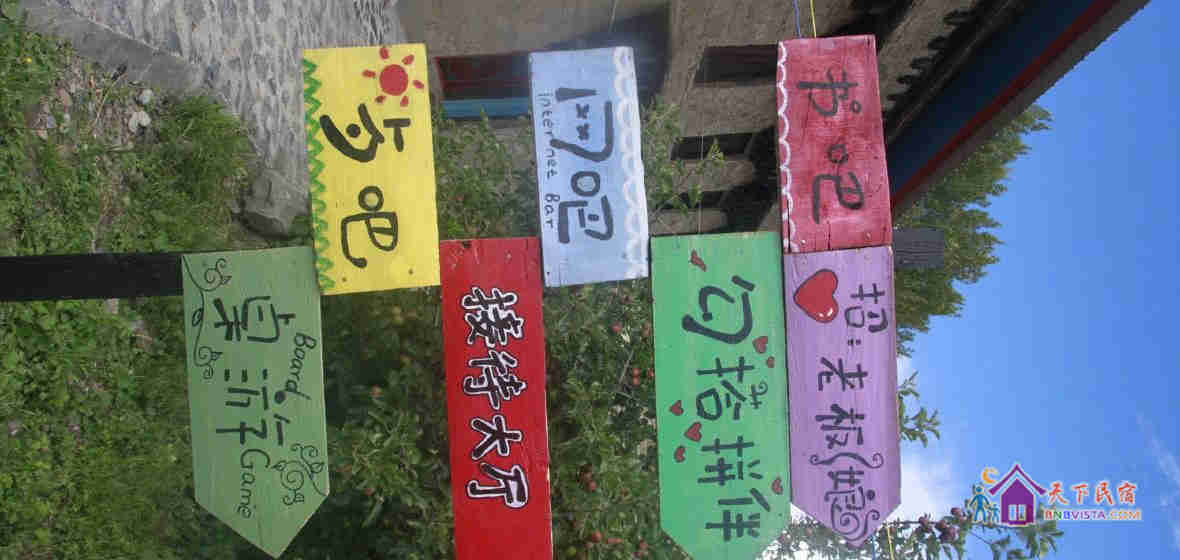 书吧
招:老板(娘)
网吧
internet Bar
勾搭拼伴
接待大厅
吧
桌游
Board Game
天下民宿
BNBVISTA.COM